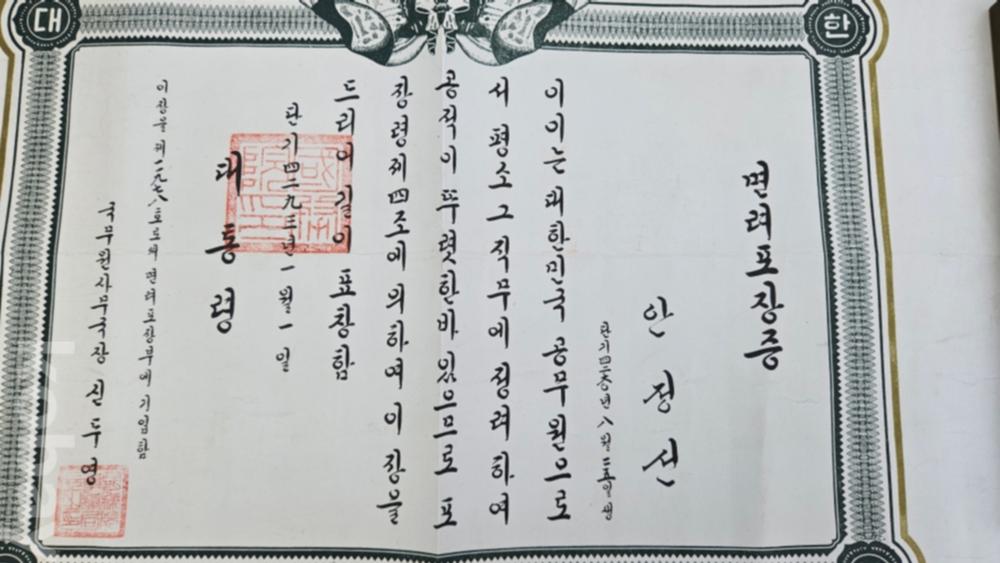 대 한
면려포장증
안정선
이이는 대한민국 공무원으로
서 평소 그 직무에 정려하여
공적이 뚜렷한바 있으므로 포
장령제四조에 의하여 이 장을
드리어 길이 표창함
단기四二九三년一월一일
대통령
이장을 제一九七八호로써 면려포장부에 기입함
국무원사무국장 신두영